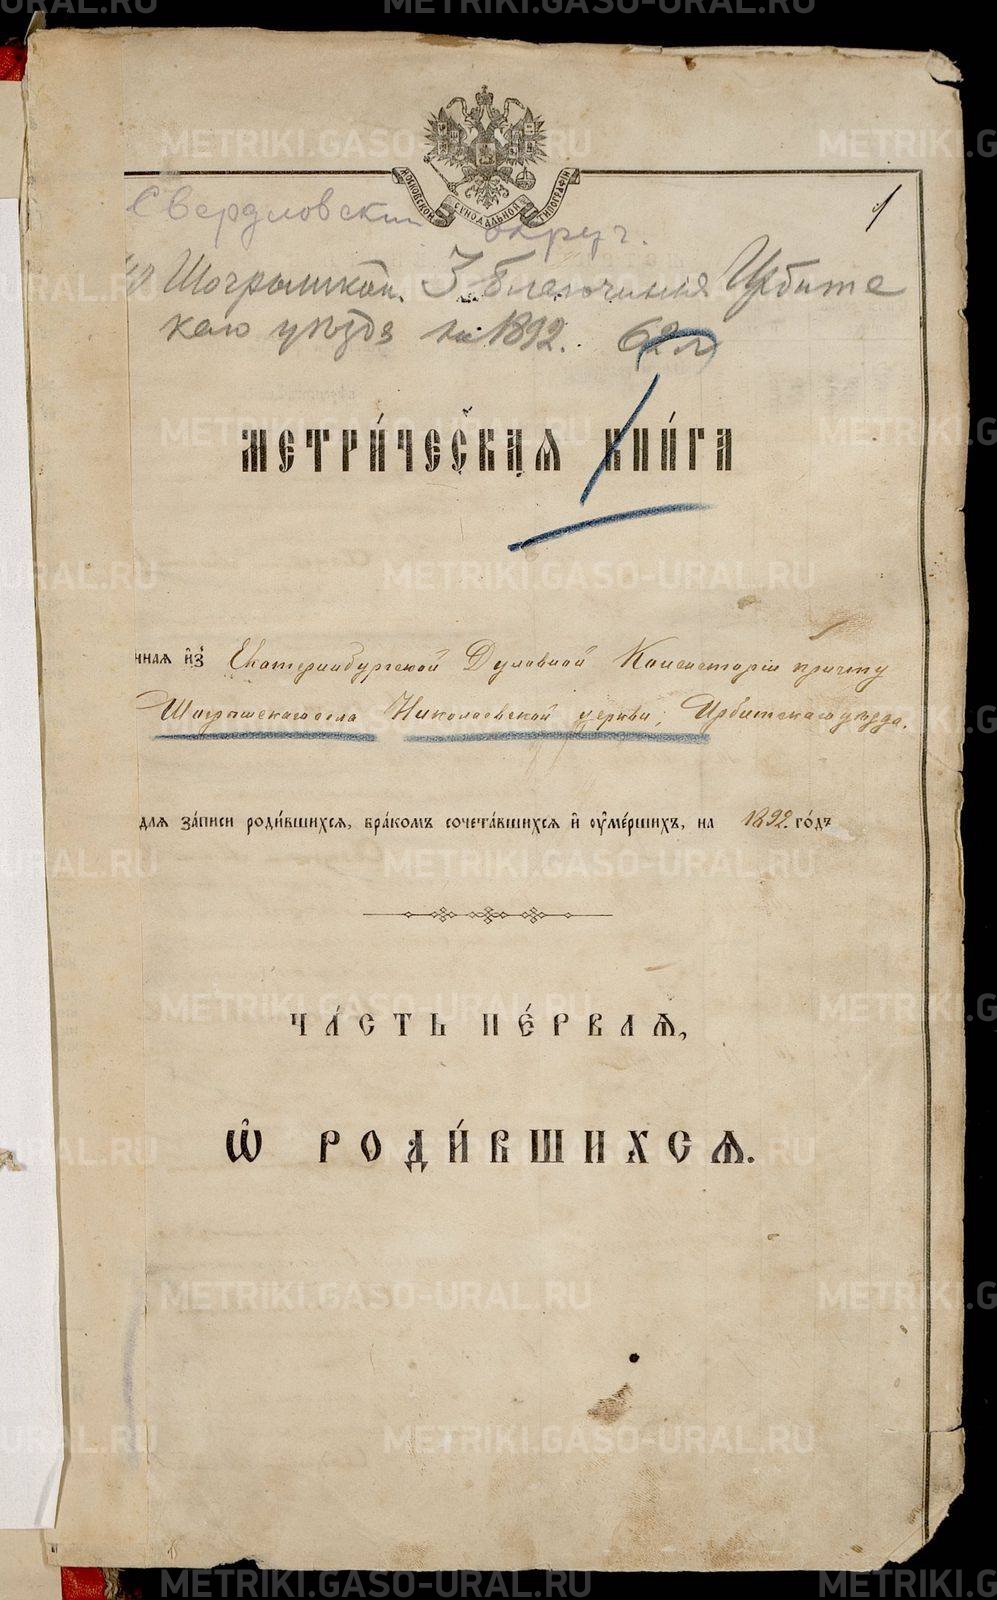 METRIKI.GASO-URAL.RU
МОСКОВСКОЙ СѴНОДАЛЬНОЙ ТИПОГРАФІИ
1
Свердловский округ.
Шогрышской 3 благочиния Ирбитс
каго уѣзда на 1892. 62 л
МЕТРИ́ЧЕСКАѦ КНИ́ГА
ннаѧ и҆з̾ Екатеринбургской Духовной Консисторіи причту
Шогрышскаго села Николаевской церкви, Ирбитскаго уѣзда.
длѧ за́писи роди́вшихсѧ, бра́комъ сочета́вшихсѧ и҆ ᲂу҆ме́ршихъ, на 1892. го́дъ
ЧА́СТЬ ПЕ́РВАѦ,
Ѡ҆ РОДИ́ВШИХСѦ.